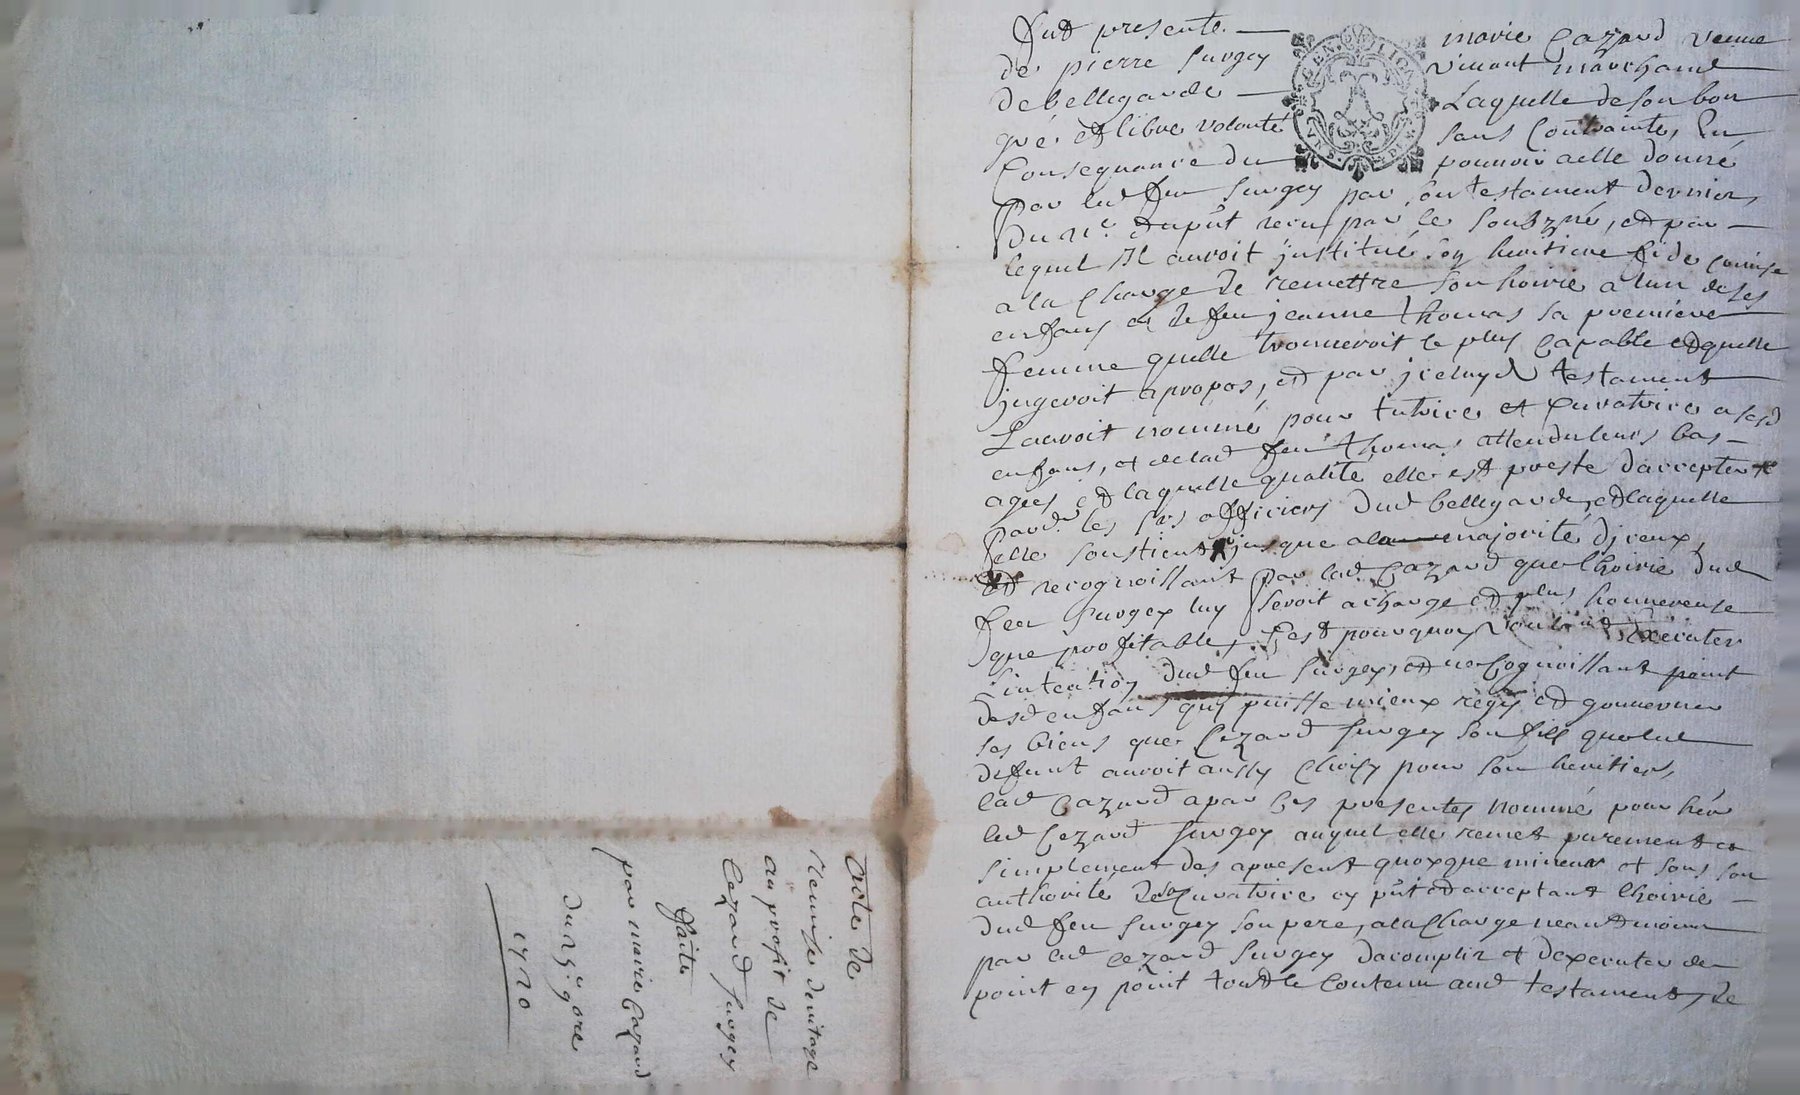 fut presente marie Cazard veuve
de pierre Surgey vivant marchand
de bellegarde Laquelle de son bon
gré et libre volonté sans Contrainte, En
Consequance du pouvoir a elle donné
Par led feu Surgey par son testament dernier,
receu par le soubzné, et par
lequel Il auroit justitué son heritiere fide comise
a la Charge de remettre son hoirie a lun de ses
enfans et de feu jeanne thomas sa premiere
femme quelle trouueroit le plus Capable et quelle
jugeroit apropos, et par jceluyd testament
Lauroit nommé pour tutrice et Curatrice a sesd
enfans, et de lad feu thomas attendu leurs bas
ages, et laquelle qualité elle est preste daccepter
Pard les srs officiers dud bellegarde, et laquelle
elle soustient jusque a la majorité djceux,
Et recognoissant Par lad Cazard que lhoirie dud
feu Surgey luy seroit a charge et plus honnereuse
que proffitable, Cest pourquoy voulant Executer
Lintention dud feu Surgey, et ne Cognoissant point
desd enfans quy puisse mieux regir et gouuerner
ses biens que Cezard Surgey son fils que led
defunt auroit aussy Choisy pour son heritier,
lad Cazard a par Ces presentes nommé pour hér
led Cezard Surgey auquel elle remet purement et
simplement des apresent quoyque mineur et sous son
authorité de Curatrice cy pnt et acceptant lhoirie
dud feu Surgey son pere, a la Charge neantmoins
par led Cezard Surgey dacomplir et dexecuter de
point en point tout le Contenu aud testament, de
Acte de
remise deritage
au profit de
Cezard Surgey
faite
par marie Cazard
du 25e 9bre
1720
GEN. LION